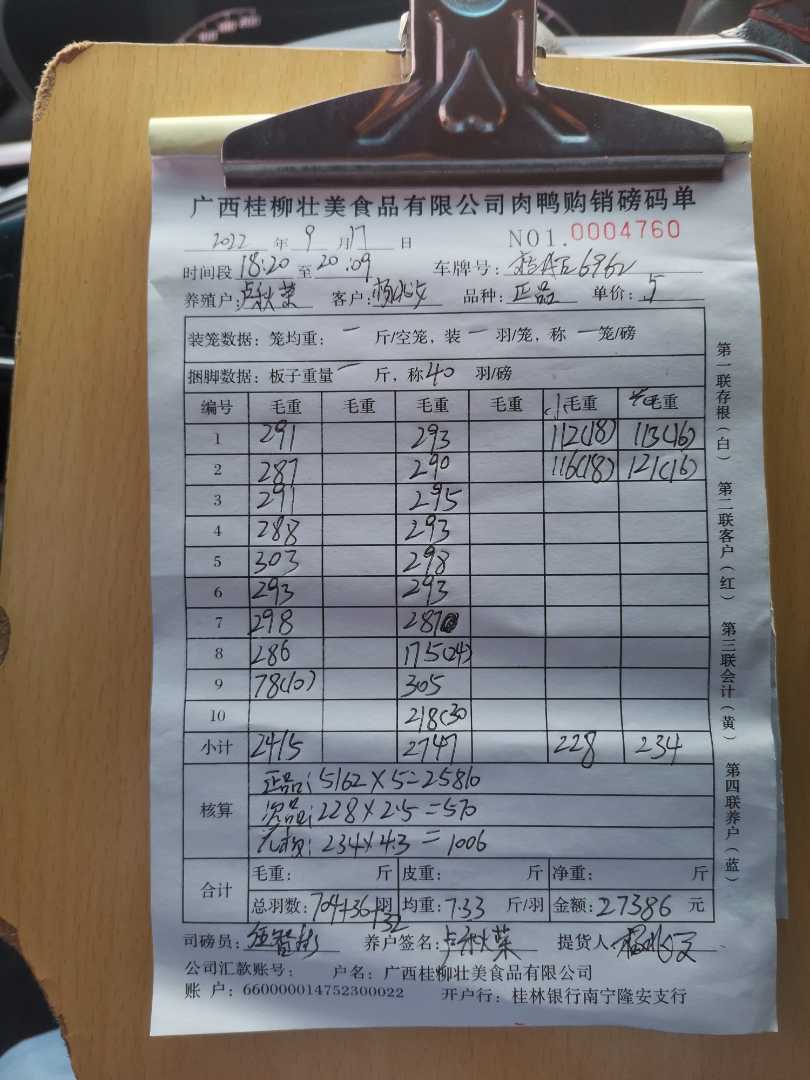 广西桂柳壮美食品有限公司肉鸭购销磅码单
2022 年 9 月 17 日 NO1.0004760
时间段 18:20 至 20:09 车牌号: 6962
养殖户: 卢秋菜 客户: 品种: 正品 单价: 5
装笼数据: 笼均重: 一 斤/空笼, 装 一 羽/笼, 称 一 笼/磅
捆脚数据: 板子重量 一 斤, 称 40 羽/磅
编号 毛重 毛重 毛重 毛重 小毛重 毛重
1 291 293 112(18) 113(16)
2 287 290 116(18) 121(16)
3 291 295
4 288 293
5 303 298
6 293 293
7 298 287
8 286 175(24)
9 78(10) 305
10 218(30
小计 2415 2747 228 234
核算
正品: 5162×5=25810
次品: 228×2.5=570
234×4.3=1006
合计
毛重: 斤 皮重: 斤 净重: 斤
总羽数: 704+36+32 羽 均重: 7.33 斤/羽 金额: 27386 元
司磅员: 养户签名: 卢秋菜 提货人
公司汇款账号: 户名: 广西桂柳壮美食品有限公司
账 户: 660000014752300022 开户行: 桂林银行南宁隆安支行
第一联存根(白) 第二联客户(红) 第三联会计(黄) 第四联养户(蓝)